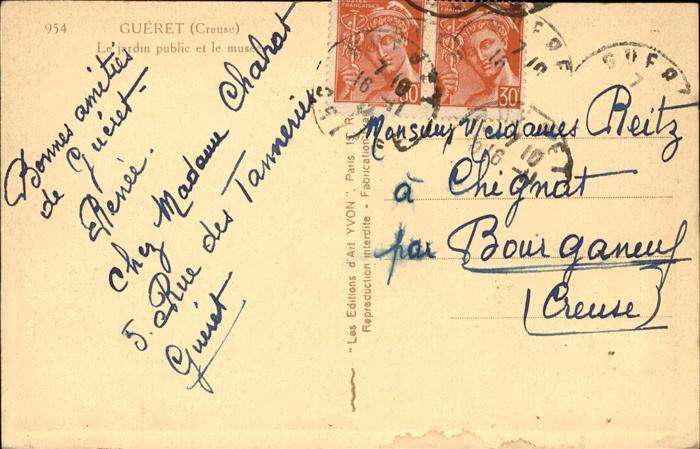 954
GUÉRET (Creuse)
Le jardin public et le musée
Bonnes amitiés
de Guéret.
Renée.
Chez Madame Chahat
5. Rue des Tanneries
Guéret
"Les Editions d'Art YVON". Paris, 15, R.
Reproduction Interdite - Fabrication
30
30
GUERET
Monsieur Mesdames Reitz
à Chignat
par Bourganeuf
(Creuse)